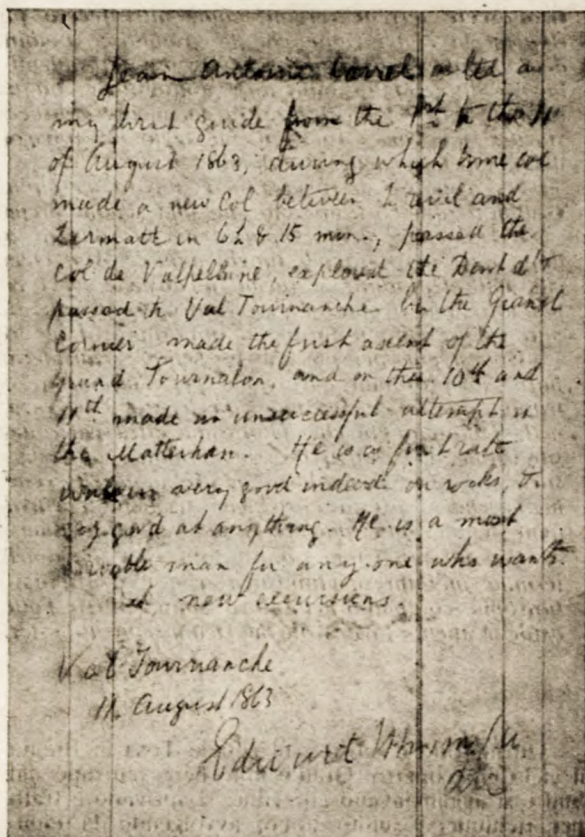 Jean Antoine Carrel acted as
my first guide from the 1st to the 11
of August 1863, during which time we
made a new Col between Breuil and
Zermatt in 6h & 15 min., passed the
Col de Valpelline, explored the Dent d'
passed to Val Tournanche by the Grand
Cornier made the first ascent of the
Grand Tournalon, and on the 10th and
11th made an unsuccessful attempt on
the Matterhorn. He is a first rate
very good indeed on rocks, &
good at anything. He is a most
man for any one who wants
new excursions.
Val Tournanche
11 August 1863
Edward Whymper